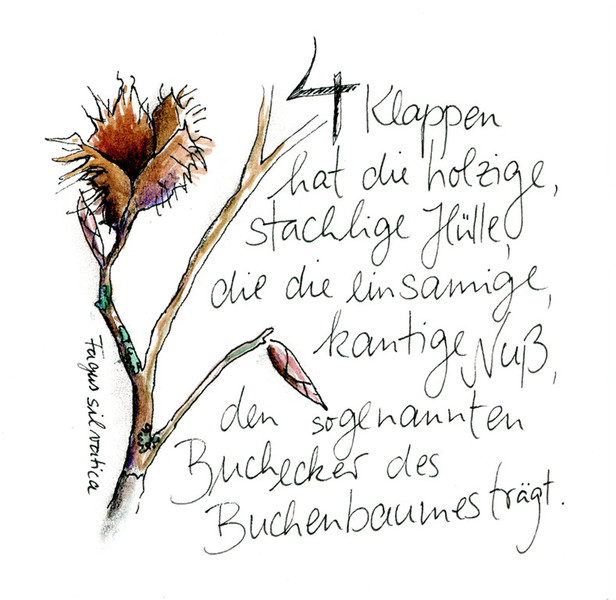 4 Klappen
hat die holzige,
stachlige Hülle,
die die einsamige,
kantige Nuß,
den sogenannten
Buchecker des
Buchenbaumes trägt.
Fagus silvatica